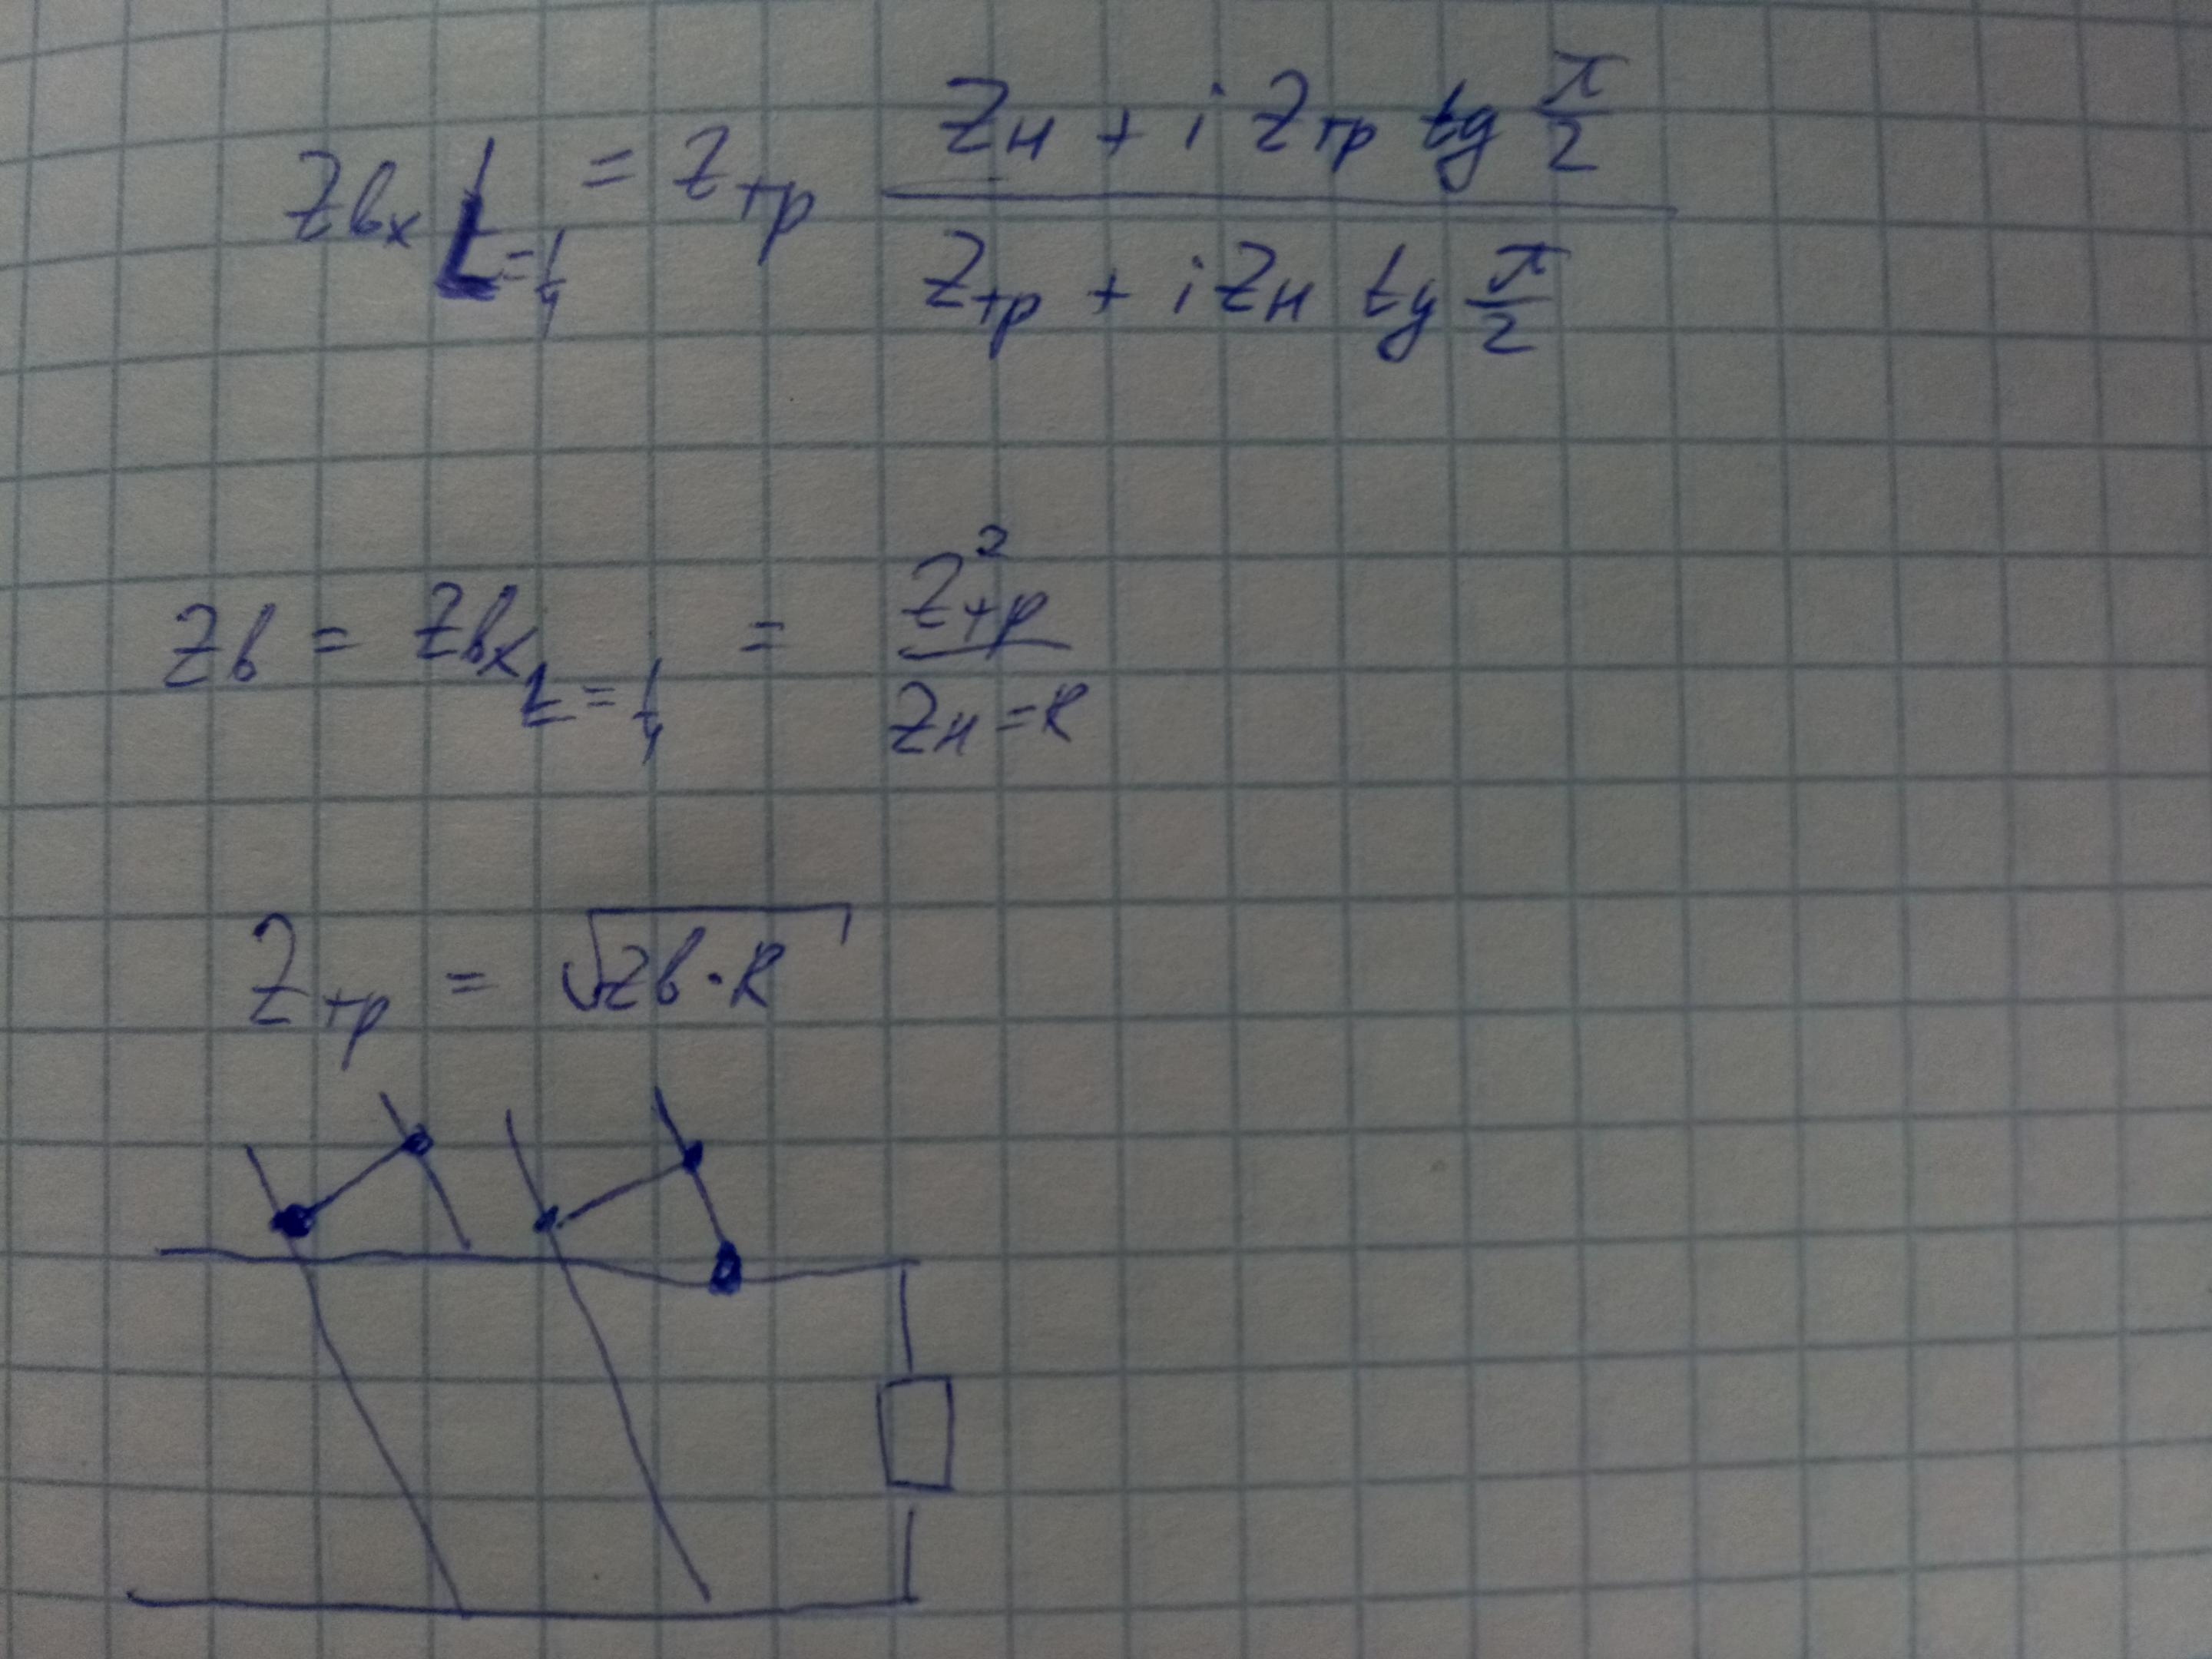 Zвх L=1/4 = Zтр (Zн + i Zтр tg π/2) / (Zтр + i Zн tg π/2)
Zв = Zвх L=1/4 = Z²тр / Zн=R
Zтр = √(Zв·R)